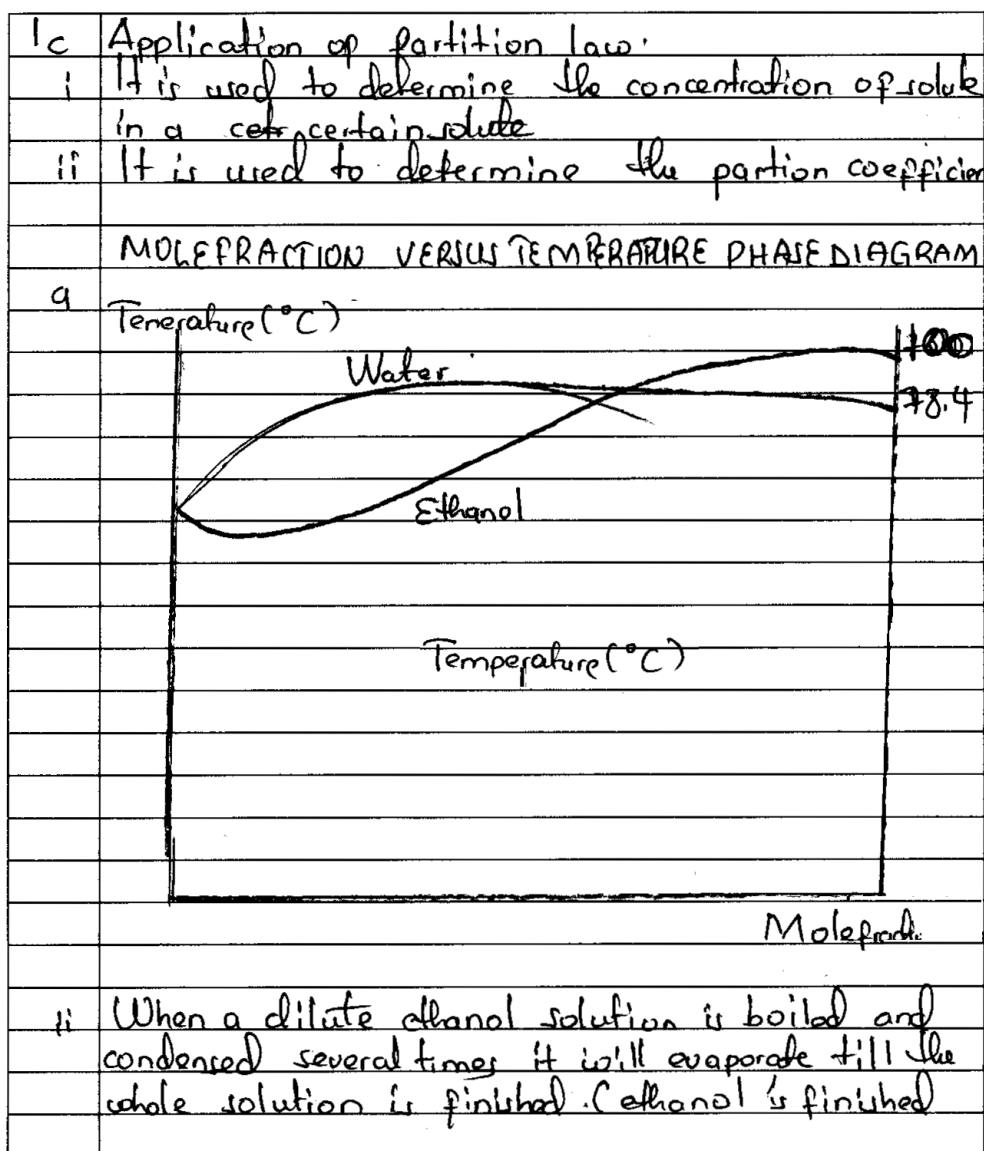 1c Application op partition law.
i It is used to determine the concentration of solute
in a cetr certain solute
ii It is used to determine the partion coefficien
MOLEFRACTION VERSUS TEMPERATURE PHASE DIAGRAM
a
Tenerature (°C)
100
Water
78.4
Ethanol
Temperature (°C)
Molefracti
ii When a dilute ethanol solution is boiled and
condensed several times it will evaporate till the
whole solution is finished. (ethanol is finished